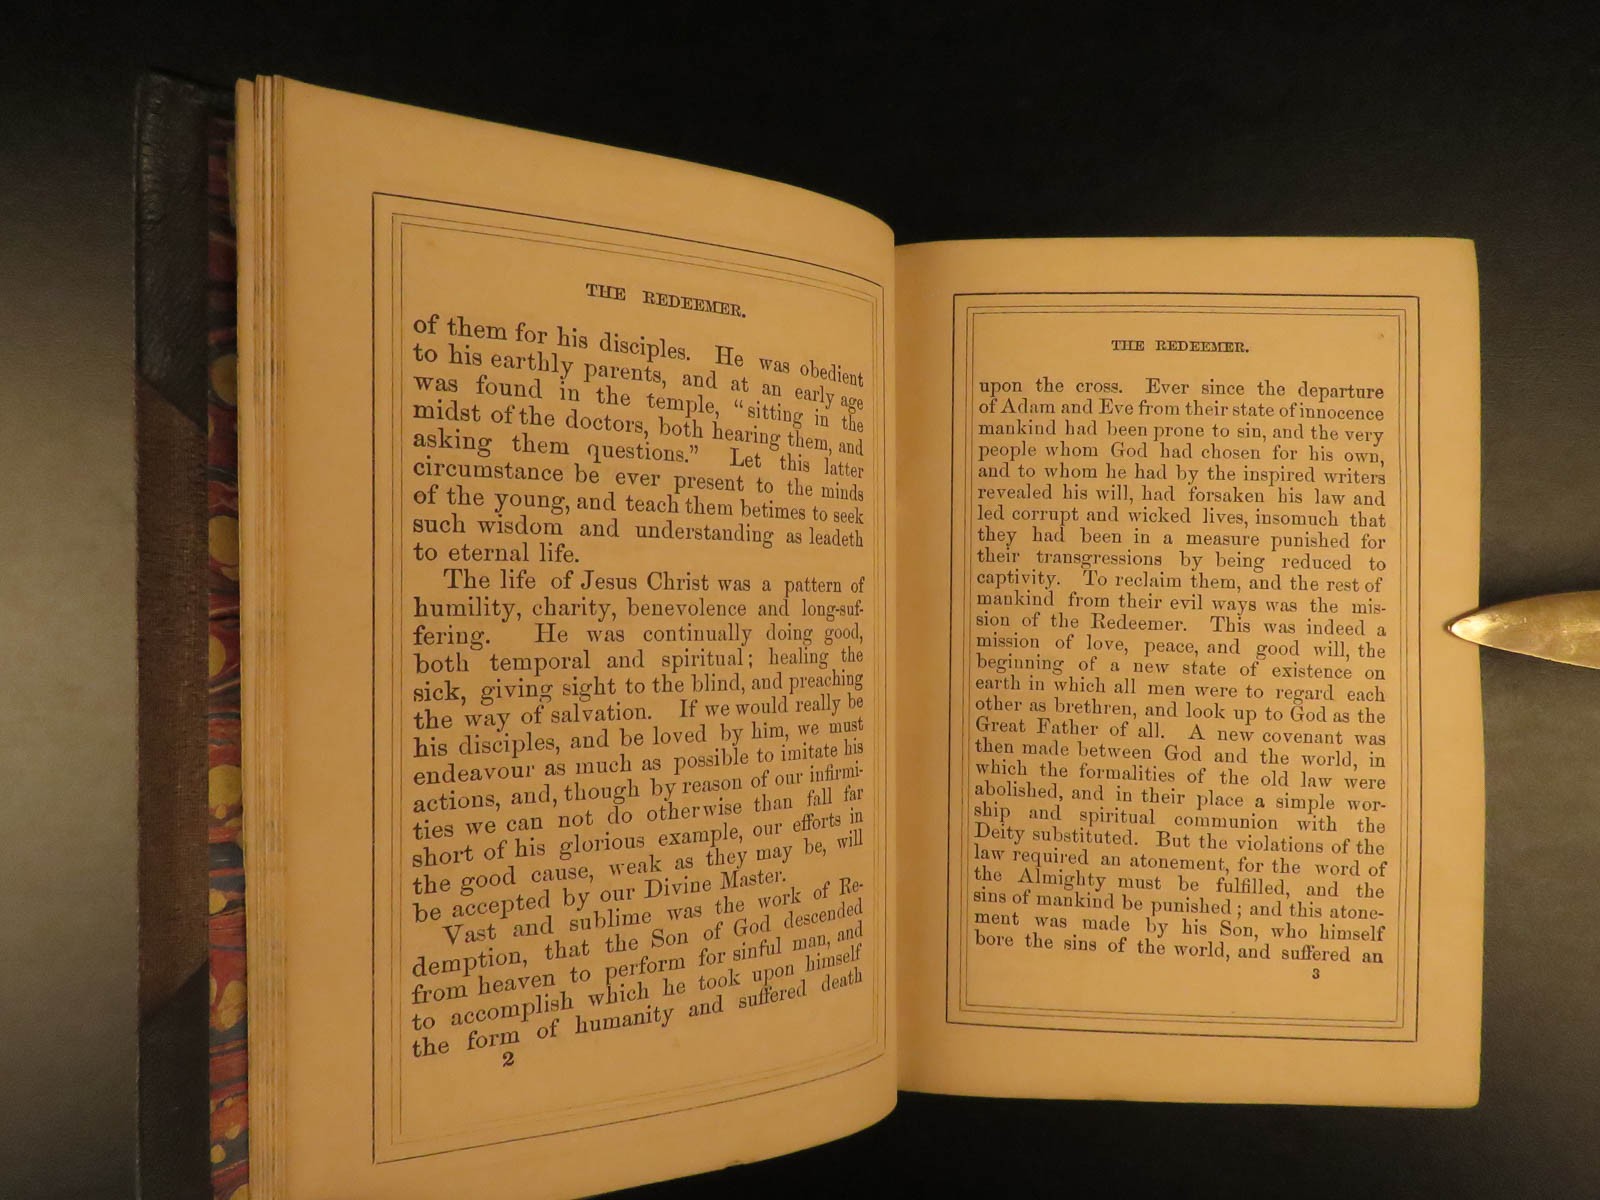 THE REDEEMER.
of them for his disciples. He was obedient
to his earthly parents, and at an early age
was found in the temple, “sitting in the
midst of the doctors, both hearing them, and
asking them questions.” Let this latter
circumstance be ever present to the minds
of the young, and teach them betimes to seek
such wisdom and understanding as leadeth
to eternal life.
The life of Jesus Christ was a pattern of
humility, charity, benevolence and long-suf-
fering. He was continually doing good,
both temporal and spiritual; healing the
sick, giving sight to the blind, and preaching
the way of salvation. If we would really be
his disciples, and be loved by him, we must
endeavour as much as possible to imitate his
actions, and, though by reason of our infirmi-
ties we can not do otherwise than fall far
short of his glorious example, our efforts in
the good cause, weak as they may be, will
be accepted by our Divine Master.
Vast and sublime was the work of Re-
demption, that the Son of God descended
from heaven to perform for sinful man, and
to accomplish which he took upon himself
the form of humanity and suffered death
2
THE REDEEMER.
upon the cross. Ever since the departure
of Adam and Eve from their state of innocence
mankind had been prone to sin, and the very
people whom God had chosen for his own,
and to whom he had by the inspired writers
revealed his will, had forsaken his law and
led corrupt and wicked lives, insomuch that
they had been in a measure punished for
their transgressions by being reduced to
captivity. To reclaim them, and the rest of
mankind from their evil ways was the mis-
sion of the Redeemer. This was indeed a
mission of love, peace, and good will, the
beginning of a new state of existence on
earth in which all men were to regard each
other as brethren, and look up to God as the
Great Father of all. A new covenant was
then made between God and the world, in
which the formalities of the old law were
abolished, and in their place a simple wor-
ship and spiritual communion with the
Deity substituted. But the violations of the
law required an atonement, for the word of
the Almighty must be fulfilled, and the
sins of mankind be punished; and this atone-
ment was made by his Son, who himself
bore the sins of the world, and suffered an
3